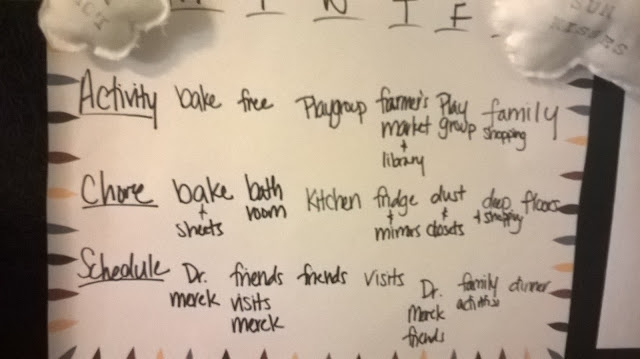 F
SUN
KISSES
Activity bake free Playgroup farmer's Play family
market group shopping
+
library
Chore bake bath Kitchen fridge dust deep floors
+ room + + + shopping
sheets mirrors closets
Schedule Dr. friends friends visits Dr. family dinner
merck visits Merck activities
merck friends